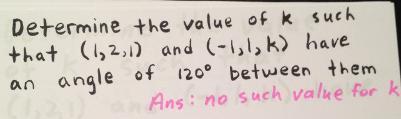 Determine the value of k such
that (1,2,1) and (-1,1,k) have
an angle of 120° between them
Ans: no such value for k